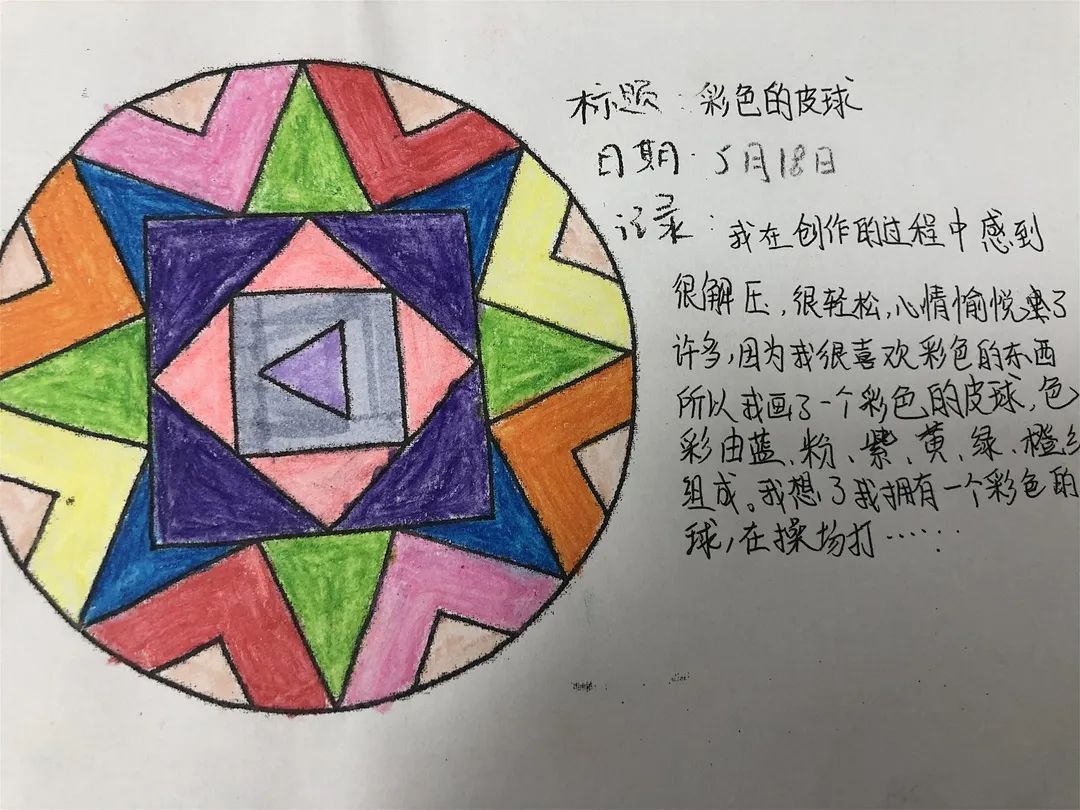 标题:彩色的皮球
日期:5月18日
记录:我在创作的过程中感到
很解压,很轻松,心情愉悦了
许多,因为我很喜欢彩色的东西
所以我画了一个彩色的皮球,色
彩由蓝、粉、紫、黄、绿、橙
组成。我想了我拥有一个彩色的
球,在操场打……